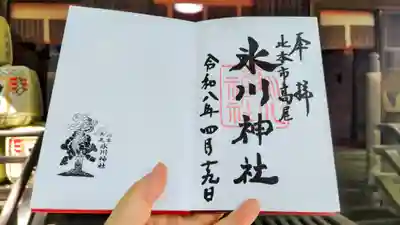 奉拝
北本市高尾
氷川神社
令和八年四月十九日
氷川神社